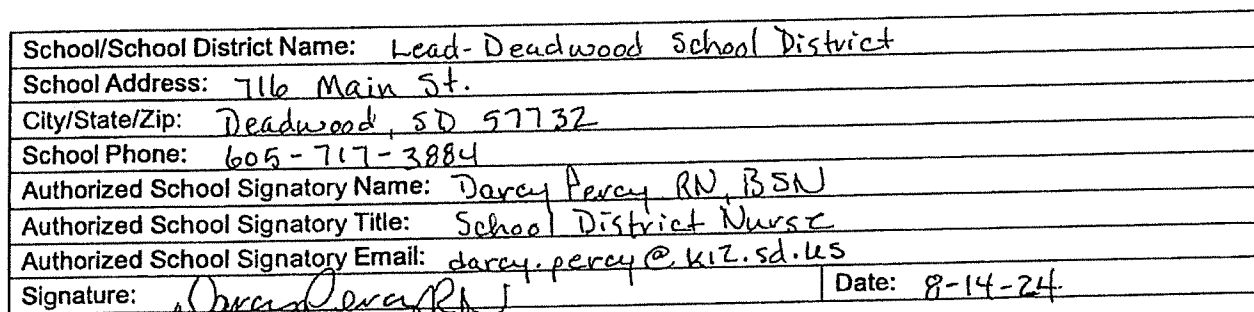 School/School District Name: Lead-Deadwood School District
School Address: 716 Main St.
City/State/Zip: Deadwood, SD 57732
School Phone: 605-717-3884
Authorized School Signatory Name: Darcy Percy RN, BSN
Authorized School Signatory Title: School District Nurse
Authorized School Signatory Email: darcy.percy@k12.sd.us
Signature: Darcy Percy RN Date: 8-14-24